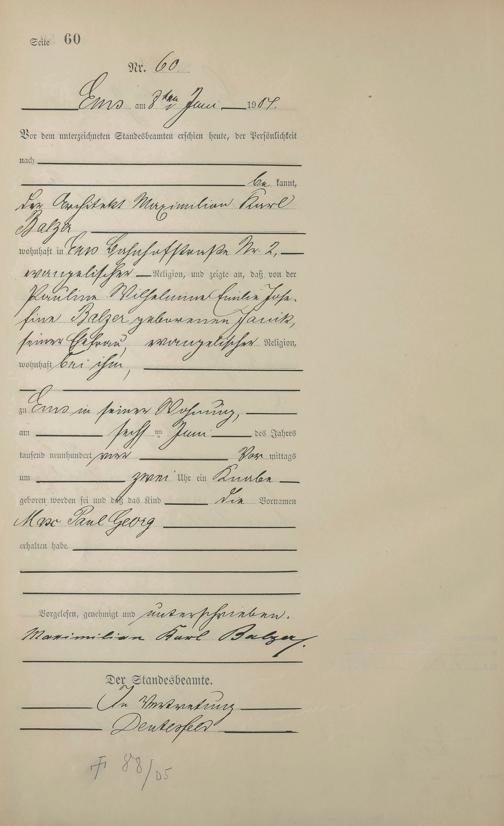 Seite 60
Nr. 60
Ems am 8ten Juni 1904.
Vor dem unterzeichneten Standesbeamten erschien heute, der Persönlichkeit
nach
be kannt,
der Architekt Maximilian Karl
Balzer
wohnhaft in Ems Bahnhofstraße Nr 2,
evangelischer Religion, und zeigte an, daß von der
Pauline Wilhelmine Emilie Jose-
fine Balzer geborenen
seiner Ehefrau evangelischer Religion,
wohnhaft bei ihm,
zu Ems in seiner Wohnung,
am sechsten Juni des Jahres
tausend neunhundert vier Vor mittags
um zwei Uhr ein Knabe
geboren worden sei und daß das Kind die Vornamen
Max Paul Georg
erhalten habe.
Vorgelesen, genehmigt und unterschrieben.
Maximilian Karl Balzer.
Der Standesbeamte.
In Vertretung
† 88/05